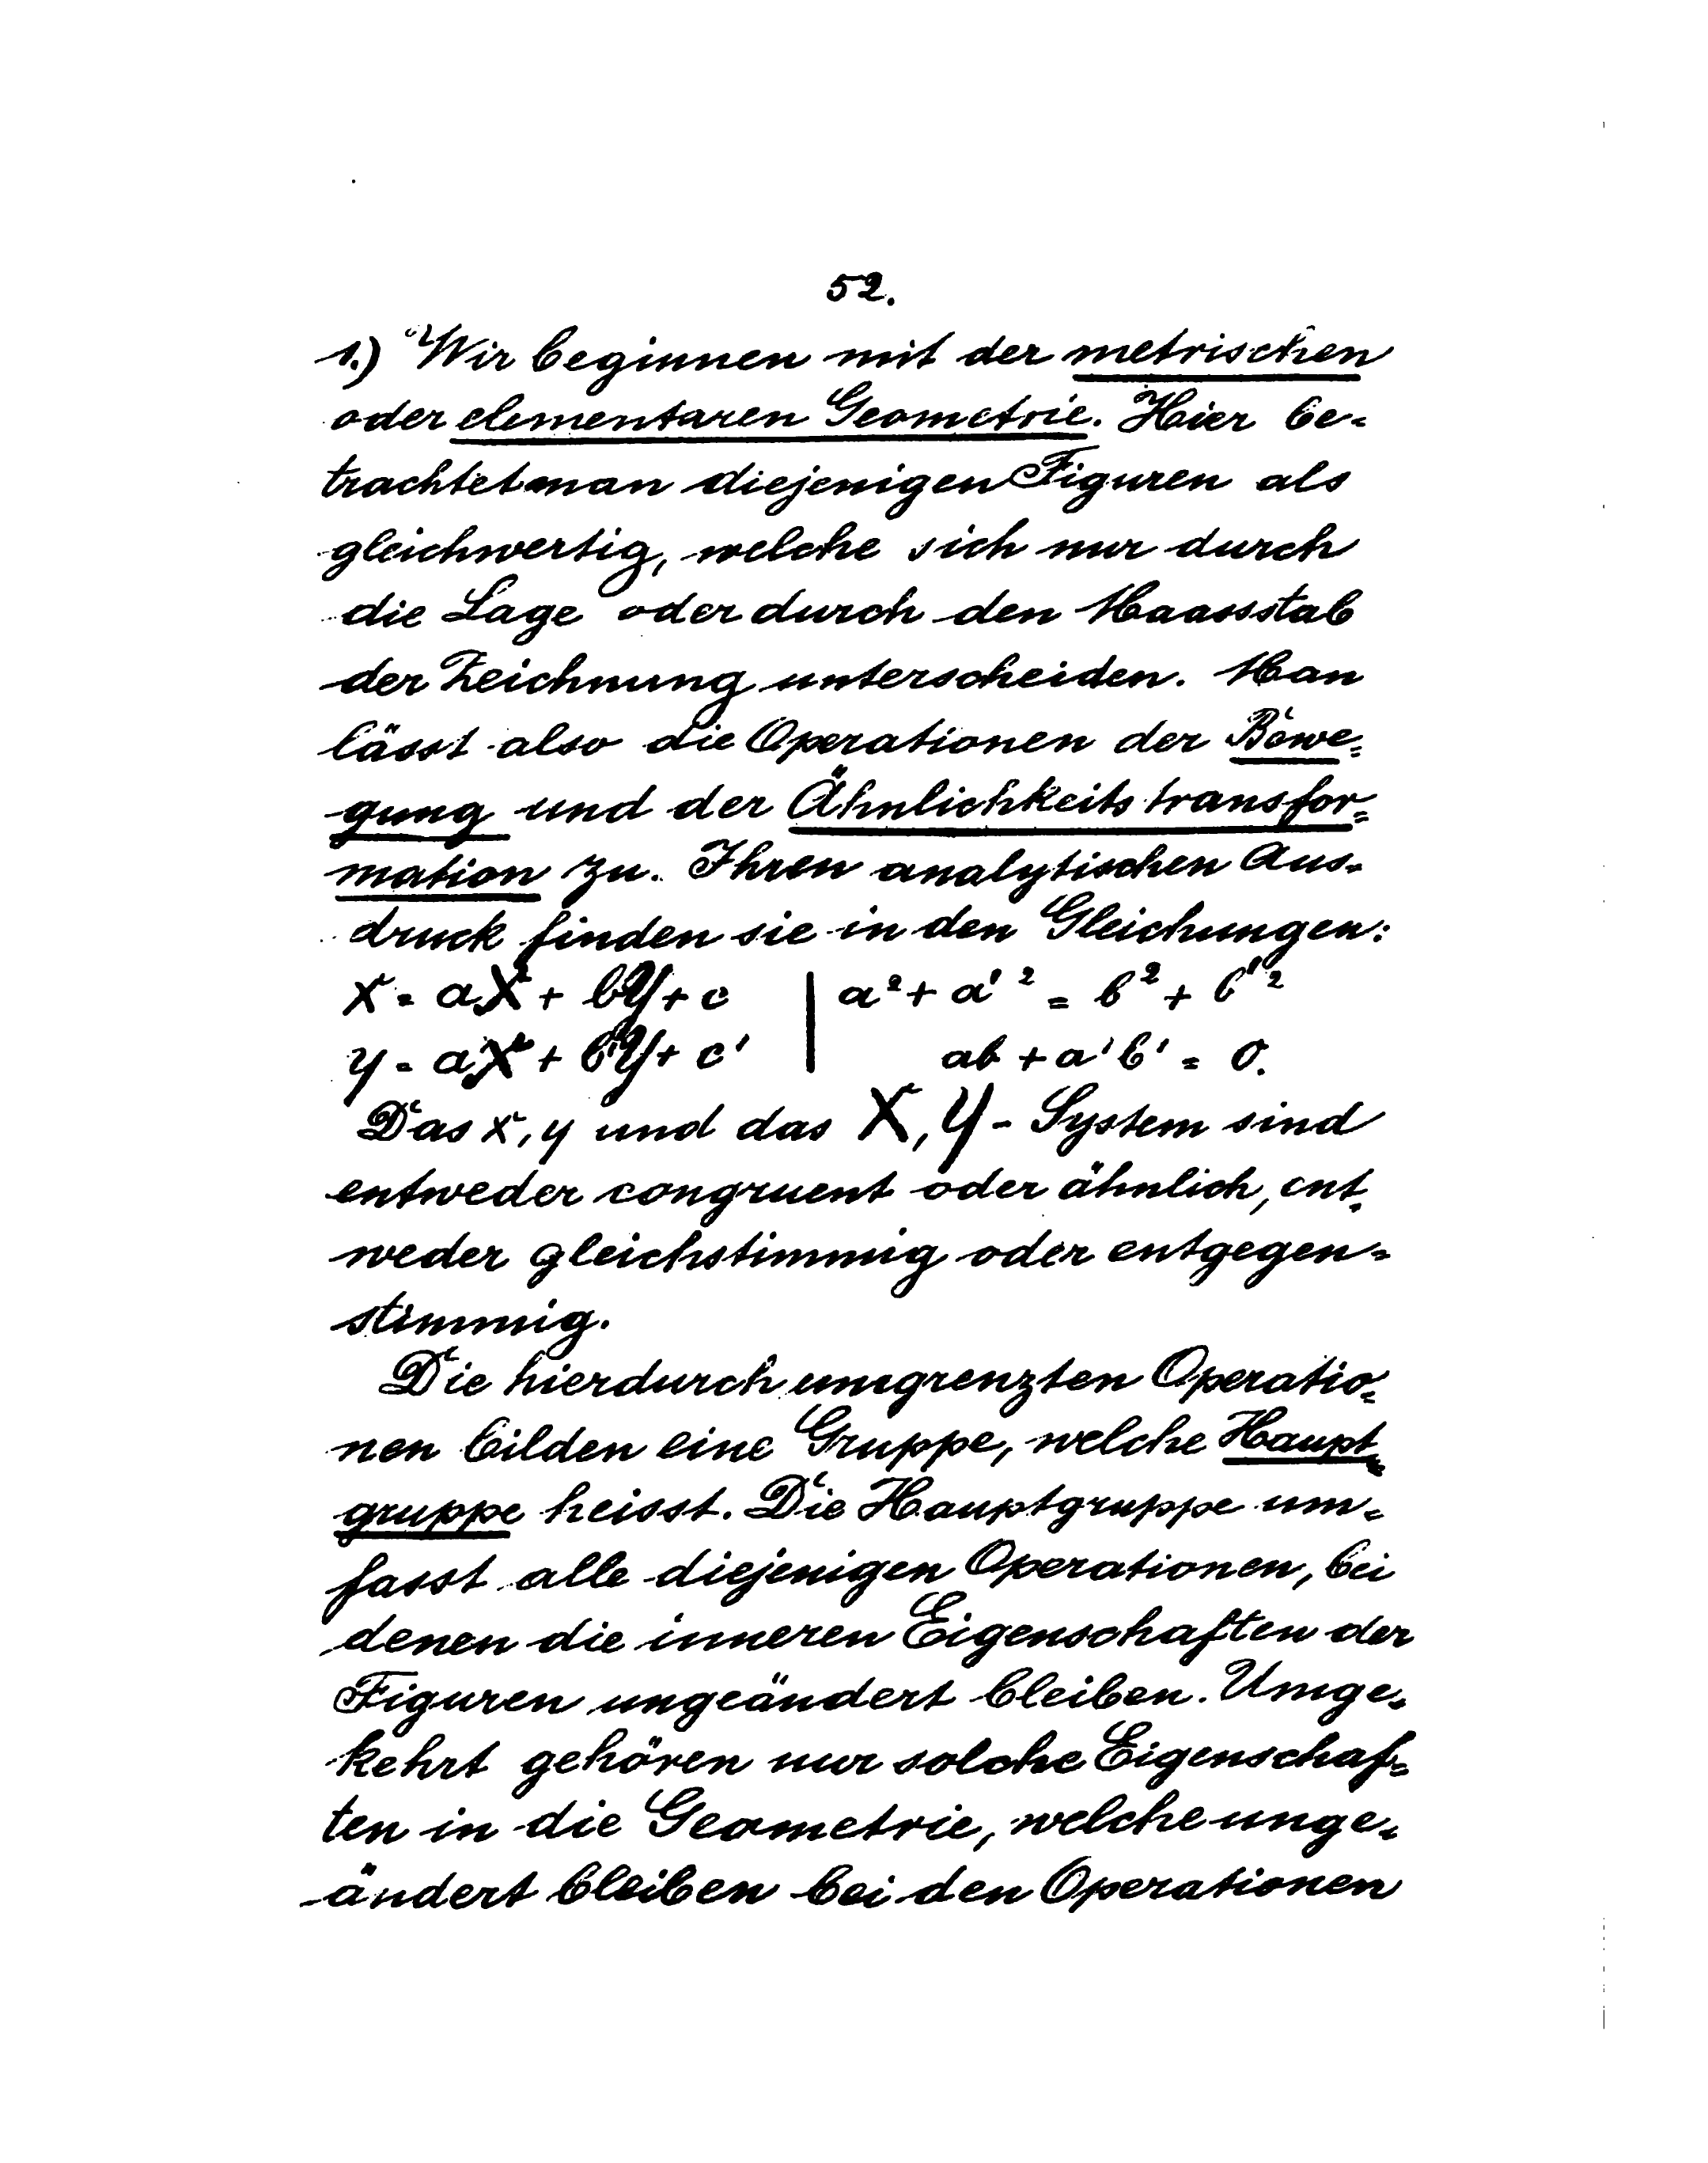 52.
1.) Wir beginnen mit der metrischen
oder elementaren Geometrie. Hier be-
trachtet man diejenigen Figuren als
gleichwertig, welche sich nur durch
die Lage oder durch den Maassstab
der Zeichnung unterscheiden. Man
lässt also die Operationen der Bewe-
gung und der Ähnlichkeitstransfor-
mation zu. Ihren analytischen Aus-
druck finden sie in den Gleichungen:
x = aX + bY + c | a² + a'² = b² + b'²
y = a'X + b'Y + c' | ab + a'b' = 0.
Das x, y und das X, Y - System sind
entweder congruent oder ähnlich, ent-
weder gleichstimmig oder entgegen-
stimmig.
Die hierdurch umgrenzten Operatio-
nen bilden eine Gruppe, welche Haupt-
gruppe heisst. Die Hauptgruppe um-
fasst alle diejenigen Operationen, bei
denen die inneren Eigenschaften der
Figuren ungeändert bleiben. Umge-
kehrt gehören nur solche Eigenschaf-
ten in die Geometrie, welche unge-
ändert bleiben bei den Operationen